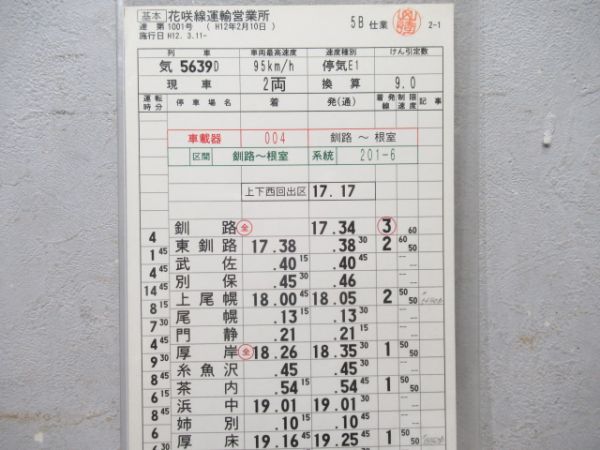 基本 花咲線運輸営業所
達 第1001号 ( H12年2月10日 ) 5B 仕業 2-1
施行日 H12. 3.11-
列 車 車両最高速度 速度種別 けん引定数
気 5639D 95km/h 停気E1
現 車 2両 換 算 9.0
運転時分 停車場名 着 発(通) 着発線 制限速度 記事
車載器 004 釧路 ~ 根室
区間 釧路~根室 系統 201-6
上下西回出区 17.17
釧路 全 17.34 3 60
4
東釧路 17.38 .38 30 2 60 50
1 45
武佐 .40 15 .40 45
4 45
別保 .45 30 .46
14 45
上尾幌 18.00 45 18.05 2 50 50
8 15
尾幌 .13 15 .13 30
7 30
門静 .21 .21 15
4 45
厚岸 全 18.26 18.35 30 1 50 50
9 30
糸魚沢 .45 .45 30
8 45
茶内 .54 15 .54 45 1 50 50
6 15
浜中 19.01 19.01 30
8 45
姉別 .10 15 .10 45
6
厚床 19.16 45 19.25 45 1 50 50
6 30